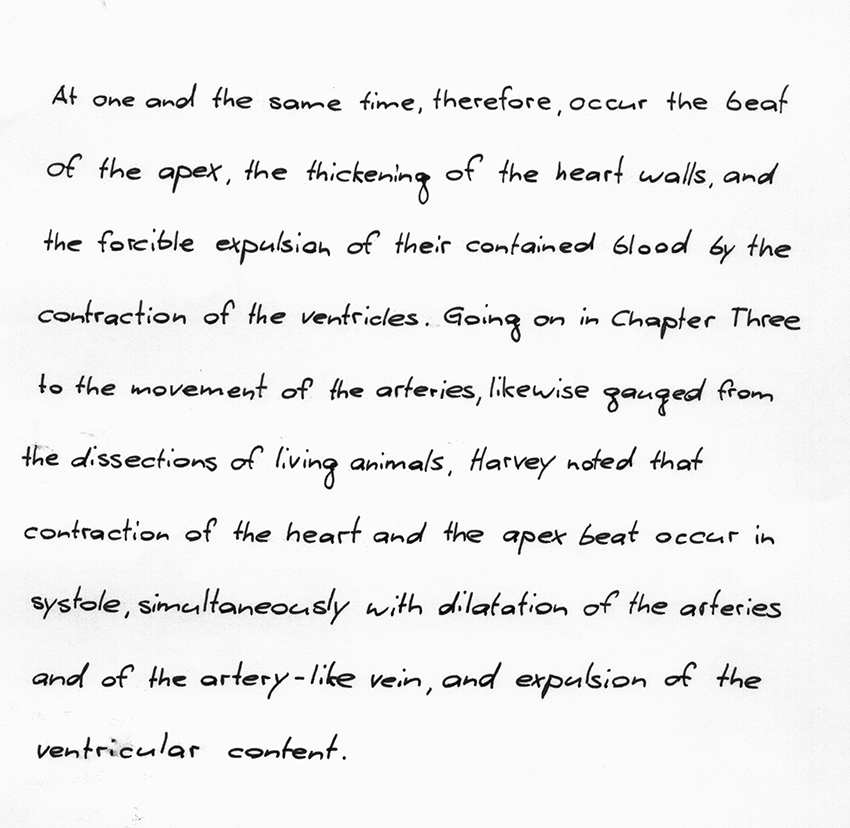 At one and the same time, therefore, occur the beat
of the apex, the thickening of the heart walls, and
the forcible expulsion of their contained blood by the
contraction of the ventricles. Going on in Chapter Three
to the movement of the arteries, likewise gauged from
the dissections of living animals, Harvey noted that
contraction of the heart and the apex beat occur in
systole, simultaneously with dilatation of the arteries
and of the artery-like vein, and expulsion of the
ventricular content.